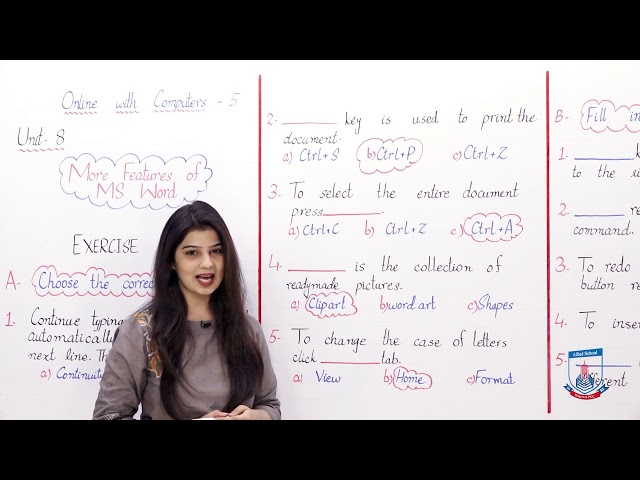 Online with Computers - 5
Unit- 8
More Features of
MS Word
EXERCISE
A- Choose the correc
1. Continue typing
automatically
next line. Th
a)
2. ______ key is used to print the
document.
a) Ctrl+S b) Ctrl+P c) Ctrl+Z
3- To select the entire document
press______.
a) Ctrl+C b) Ctrl+Z c) Ctrl+A
4. ______ is the collection of
readymade pictures.
a) Clipart b) word art c) Shapes
5- To change the case of letters
click ______ tab.
a) View b) Home c) Format
B- Fill in
1. ______
to the
2. ______ re
command.
3- To redo
button re
4- To inse
5. ______
Allied School